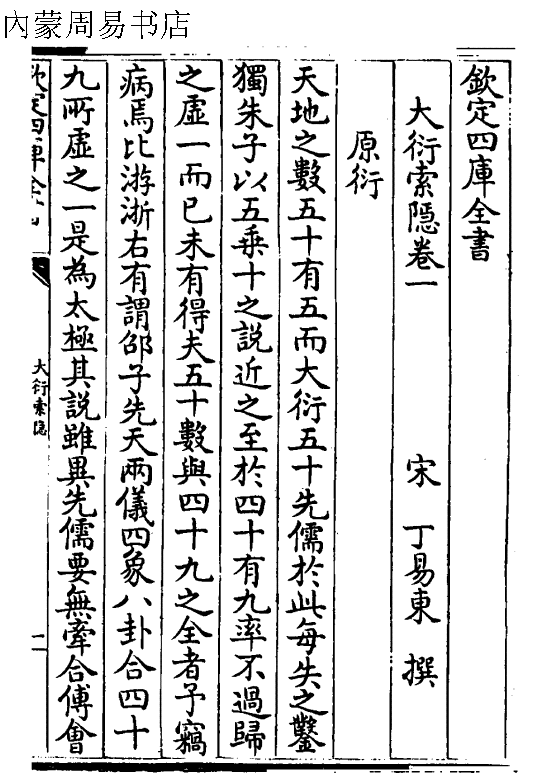 内蒙周易书店
欽定四庫全書
大衍索隱卷一
宋 丁易東 撰
原衍
天地之數五十有五而大衍五十先儒於此每失之鑿
獨朱子以五乗十之説近之至於四十有九率不過歸
之虚一而已未有得夫五十數與四十九之全者予竊
病焉比游浙右有謂邵子先天兩儀四象八卦合四十
九所虚之一是為太極其説雖異先儒要無牽合傅會
欽定四庫全書
大衍索隱
一